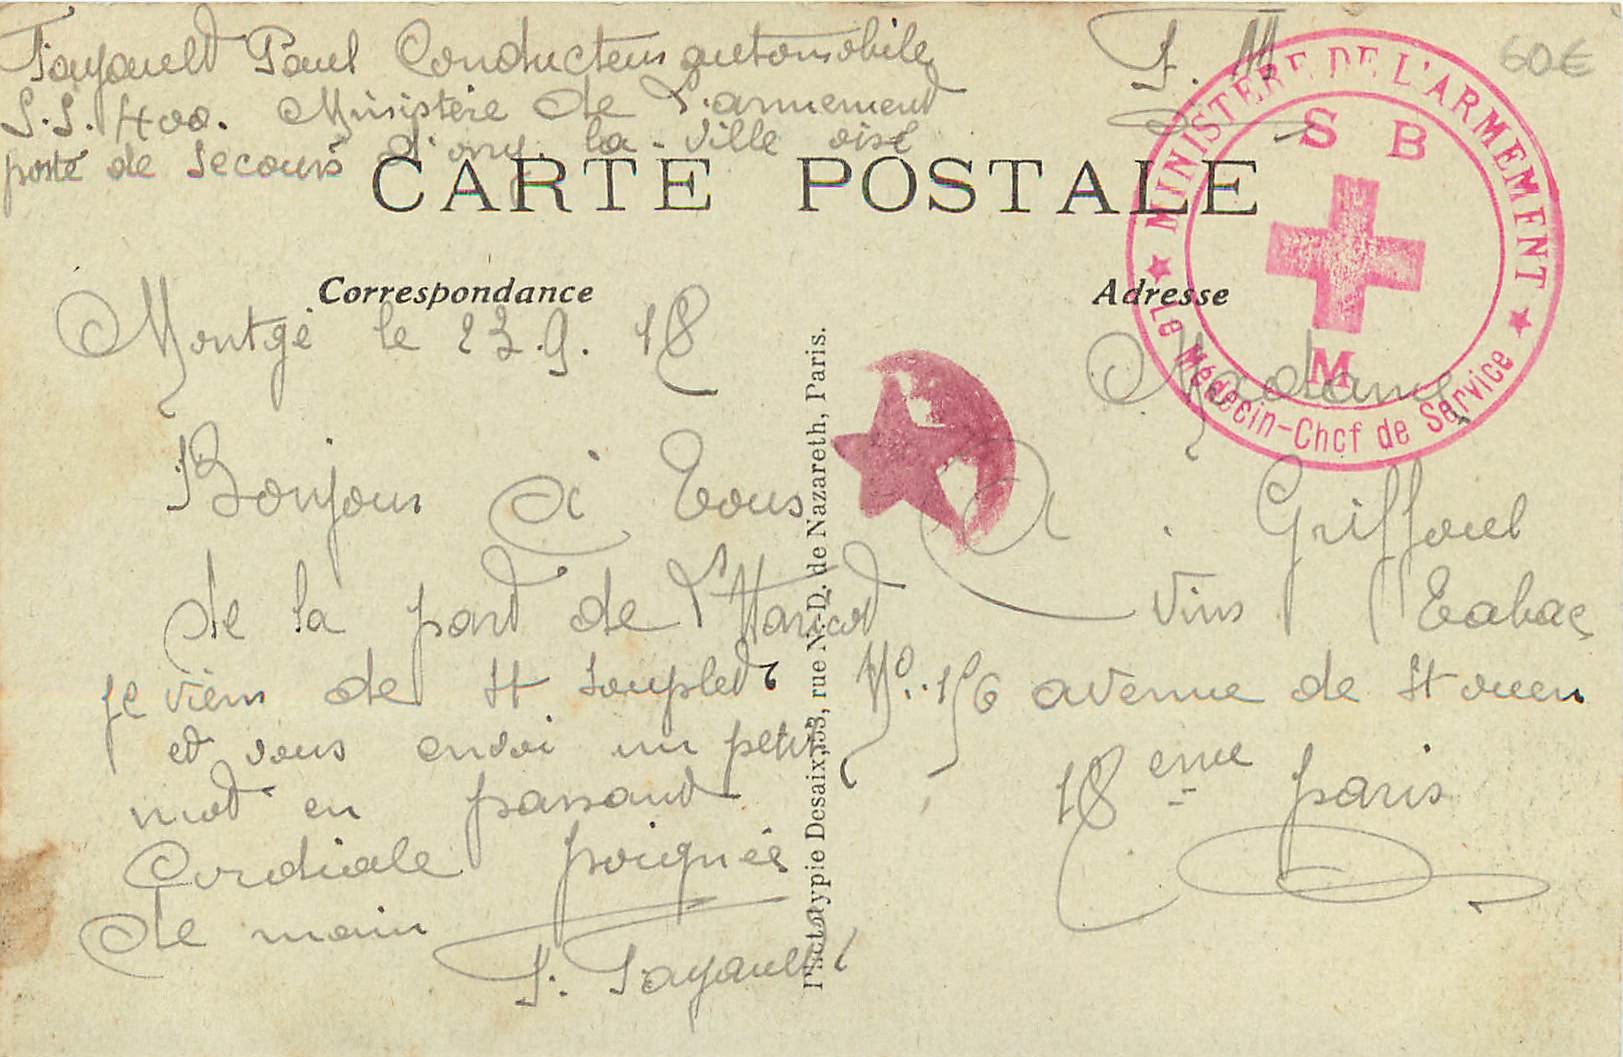 Fayault Paul Conducteur automobile
S.S. 400. Ministère de L'armement
poste de Secours d'orry la-Ville oise
F. M
60€
MINISTÈRE DE L'ARMEMENT
S B
M
Le Médecin-Chef de Service
CARTE POSTALE
Correspondance
Montgé le 23.9.18
Bonjour à Tous
de la part de l'Haricot
je viens de St Souplet
et vous envoi un petit
mot en passant
Cordiale poignée
de main
P. Fayault
Phototypie Desaix, 33, rue N.-D. de Nazareth, Paris.
Adresse
Madame
A. Griffoul
Vins Tabac
No. 156 avenue de St ouen
18 eme paris